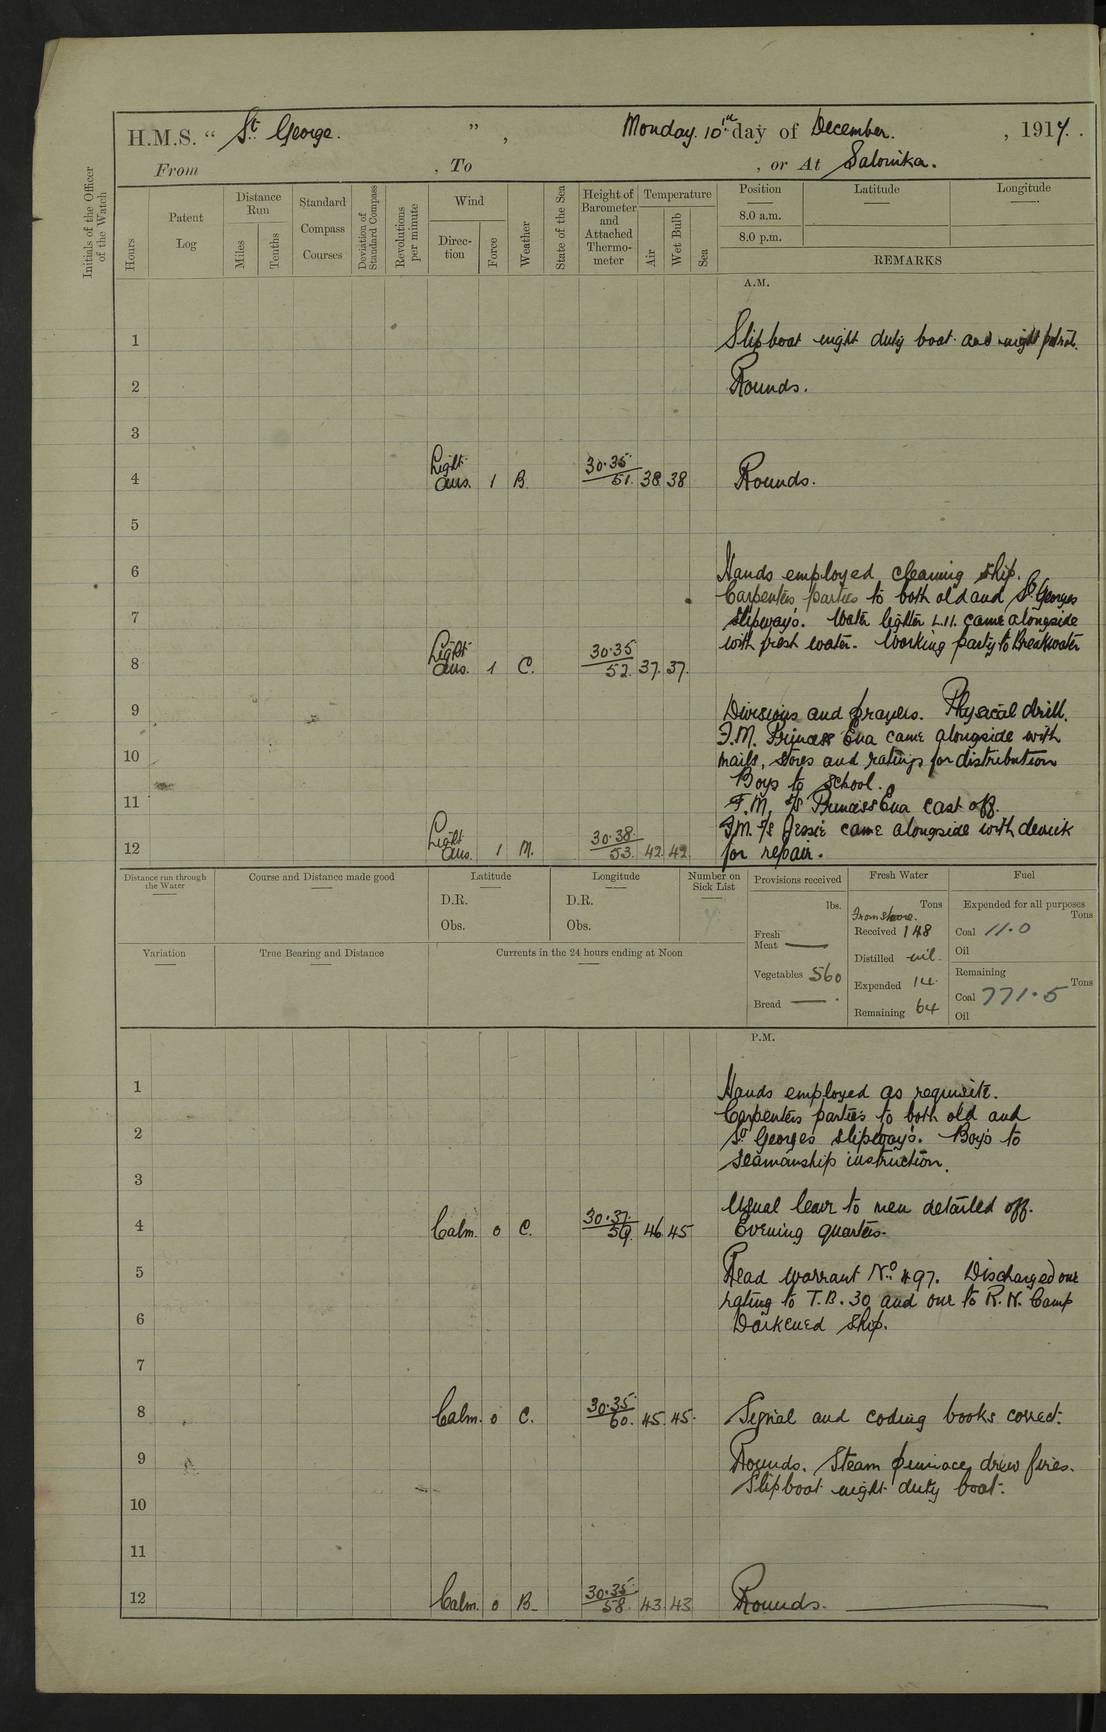 H.M.S. " St George. " , Monday. 10th day of December. , 1917. .
From , To , or At Salonika.
Initials of the Officer of the Watch
Hours
Patent Log
Distance Run
Miles
Tenths
Standard Compass Courses
Deviation of Standard Compass
Revolutions per minute
Wind
Direc-tion
Force
Weather
State of the Sea
Height of Barometer and Attached Thermo-meter
Temperature
Air
Wet Bulb
Sea
Position
Latitude
Longitude
8.0 a.m.
8.0 p.m.
REMARKS
A.M.
1 Slipboat night duty boat and night patrol.
2 Rounds.
3
4 Light airs. 1 B. 30.35 51. 38 38 Rounds.
5
6 Hands employed cleaning ship.
Carpenters parties to both old and St Georges
7 slipways. Water lighter L.11. came alongside
with fresh water. Working party to Breakwater
8 Light airs. 1 C. 30.35 52. 37. 37.
9 Divisions and prayers. Physical drill.
F.M. Princess Ena came alongside with
10 mails, stores and ratings for distribution
Boys to School.
11 F.M. S/S Princess Ena cast off.
F.M. S/S Jessie came alongside with derrick
12 Light airs. 1 M. 30.38. 53. 42 42 for repair.
Distance run through the Water
Course and Distance made good
Latitude
D.R.
Obs.
Longitude
D.R.
Obs.
Number on Sick List
Provisions received
lbs.
Fresh Meat —
Vegetables 560
Bread —
Fresh Water
Tons
From shore.
Received 148
Distilled nil
Expended 14
Remaining 64
Fuel
Expended for all purposes
Tons
Coal 11.0
Oil
Remaining
Tons
Coal 771.5
Oil
Variation
True Bearing and Distance
Currents in the 24 hours ending at Noon
P.M.
1 Hands employed as requisite.
Carpenters parties to both old and
2 St Georges slipways. Boys to
seamanship instruction.
3
Usual leave to men detailed off.
4 Calm. 0 C. 30.37. 59. 46 45 Evening quarters.
5 Read warrant No. 497. Discharged one
rating to T.B. 30 and one to R.N. Camp
6 Darkened ship.
7
8 Calm. 0 C. 30.35 60. 45. 45. Signal and coding books correct.
9 Rounds. Steam pinnace, drew fires.
Slipboat night duty boat.
10
11
12 Calm. 0 B. 30.35 58. 43. 43 Rounds.